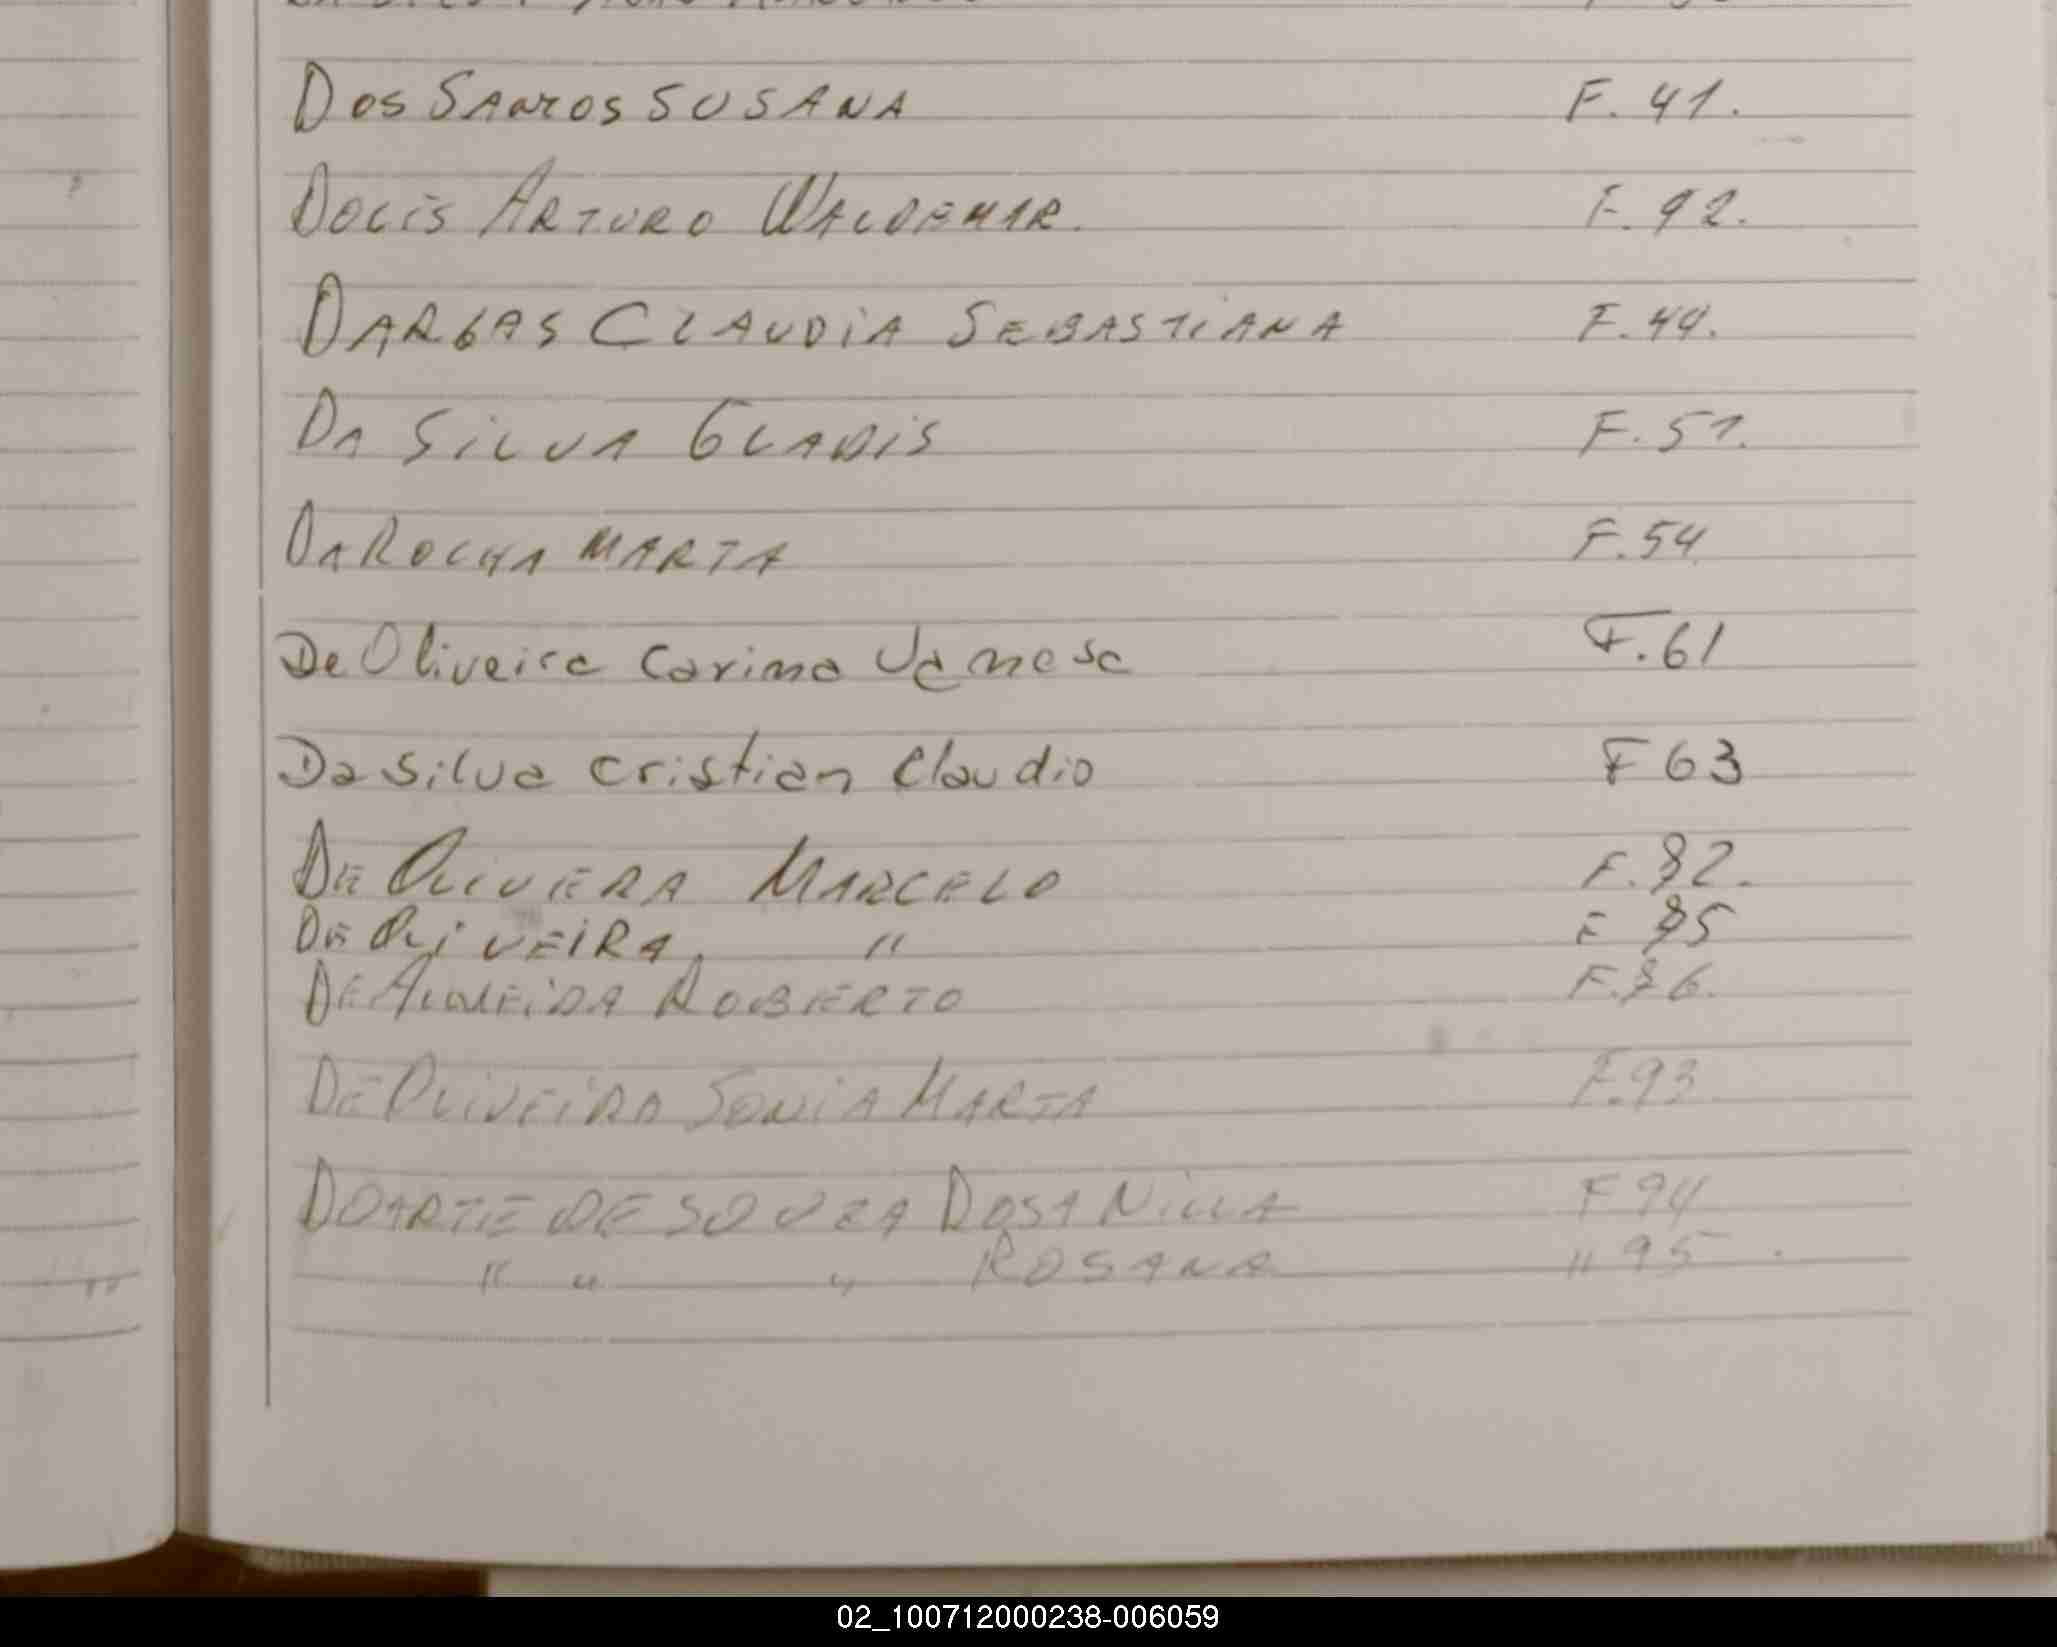 Dos Santos SUSANA F. 41.
Dolis Arturo Waldemar. F. 42.
Dargas Claudia Sebastiana F. 44.
Da Silva Gladis F. 51.
Da Rocha Marta F. 54
De Oliveira Carina Vanesa F. 61
Da Silva Cristian Claudio F 63
De Olivera Marcelo F. 82.
De Oliveira " F 85
De Almeida Roberto F. 86.
De Oliveira Sonia Marta F. 93
Doarte de Souza Dosa Nilla F 94
" " " Rosana " 95
02_100712000238-006059